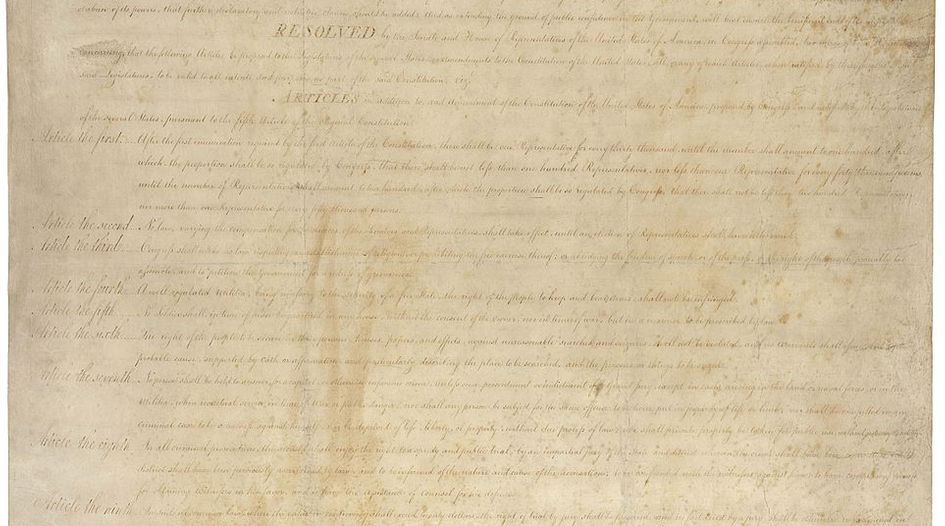 abuse of its powers, that further declaratory and restrictive clauses should be added: And as extending the ground of public confidence in the Government, will best ensure the beneficent ends of its
RESOLVED by the Senate and House of Representatives of the United States of America, in Congress assembled, two thirds of both Houses
concurring, that the following Articles be proposed to the Legislatures of the several States, as amendments to the Constitution of the United States, all, or any of which Articles, when ratified by three fourths of the
said Legislatures, to be valid to all intents and purposes, as part of the said Constitution; viz.
ARTICLES in addition to, and Amendment of the Constitution of the United States of America, proposed by Congress, and ratified by the Legislatures
of the several States, pursuant to the fifth Article of the original Constitution.
Article the first... After the first enumeration required by the first Article of the Constitution, there shall be one Representative for every thirty thousand, until the number shall amount to one hundred, after
which, the proportion shall be so regulated by Congress, that there shall be not less than one hundred Representatives, nor less than one Representative for every forty thousand persons,
until the number of Representatives shall amount to two hundred, after which the proportion shall be so regulated by Congress, that there shall not be less than two hundred Representatives,
nor more than one Representative for every fifty thousand persons.
Article the second... No law, varying the compensation for the services of the Senators and Representatives, shall take effect, until an election of Representatives shall have intervened.
Article the third... Congress shall make no law respecting an establishment of religion, or prohibiting the free exercise thereof; or abridging the freedom of speech, or of the press; or the right of the people peaceably to
assemble, and to petition the Government for a redress of grievances.
Article the fourth... A well regulated Militia, being necessary to the security of a free State, the right of the people to keep and bear Arms, shall not be infringed.
Article the fifth... No Soldier shall, in time of peace be quartered in any house, without the consent of the owner, nor in time of war, but in a manner to be prescribed by law.
Article the sixth... The right of the people to be secure in their persons, houses, papers, and effects, against unreasonable searches and seizures, shall not be violated, and no warrants shall issue, but upon
probable cause, supported by oath or affirmation, and particularly describing the place to be searched, and the persons or things to be seized.
Article the seventh... No person shall be held to answer for a capital, or otherwise infamous crime, unless on a presentment or indictment of a Grand Jury, except in cases arising in the land or naval forces, or in the
Militia, when in actual service in time of War or public danger; nor shall any person be subject for the same offence to be twice put in jeopardy of life or limb; nor shall be compelled in any
criminal case to be a witness against himself, nor be deprived of life, liberty, or property, without due process of law; nor shall private property be taken for public use, without just compensation.
Article the eighth... In all criminal prosecutions, the accused shall enjoy the right to a speedy and public trial, by an impartial jury of the State and district wherein the crime shall have been committed, which
district shall have been previously ascertained by law, and to be informed of the nature and cause of the accusation; to be confronted with the witnesses against him; to have compulsory process
for obtaining witnesses in his favor, and to have the assistance of counsel for his defence.
Article the ninth... In suits at common law, where the value in controversy shall exceed twenty dollars, the right of trial by jury shall be preserved, and no fact tried by a jury, shall be otherwise re-examined in